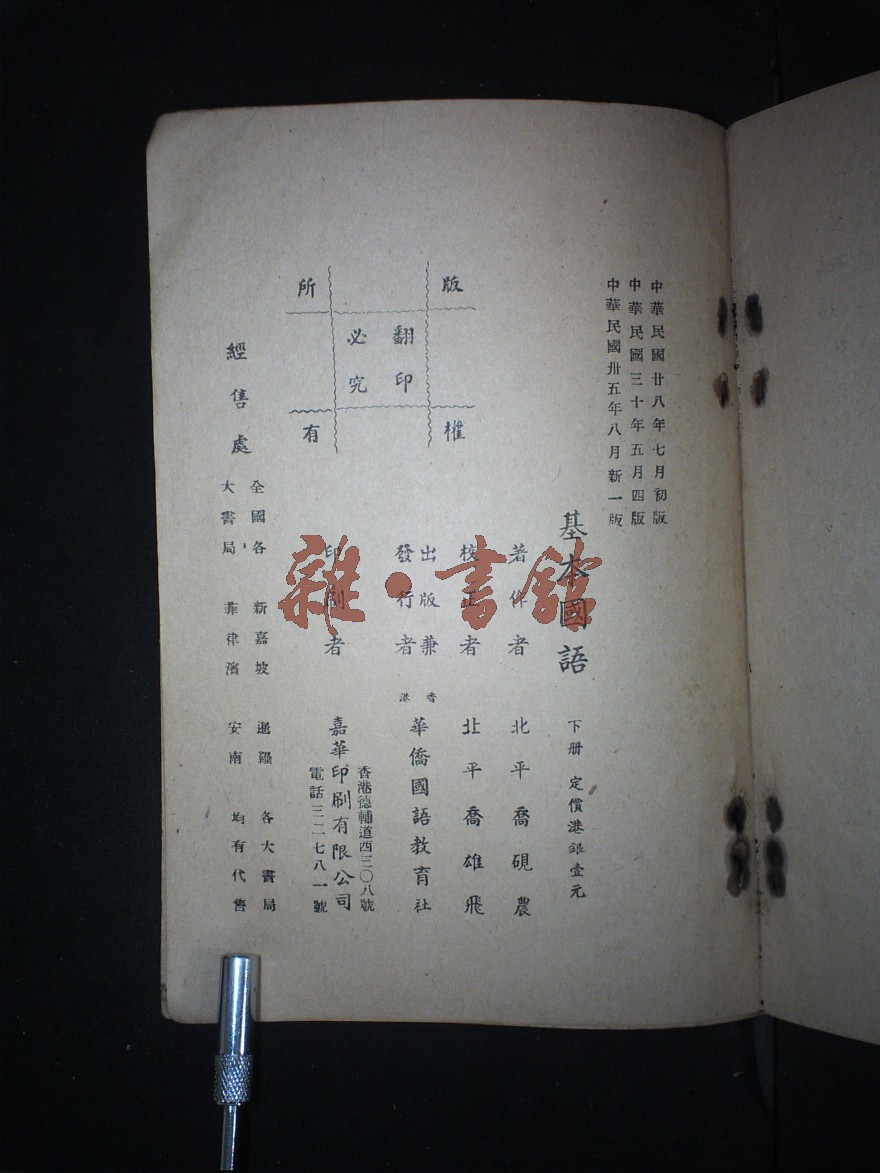 中華民國廿八年七月初版
中華民國三十年五月四版
中華民國卅五年八月新一版
基本國語 下册 定價港銀壹元
著作者 北平喬硯農
校正者 北平喬雄飛
出版兼發行者 香港 華僑國語教育社
印刷者 嘉華印刷有限公司
香港德輔道西三〇八號
電話三二七八一號
版權所有
翻印必究
經售處
全國各大書局
新嘉坡 暹羅 各大書局
菲律濱 安南 均有代售
雜·書館